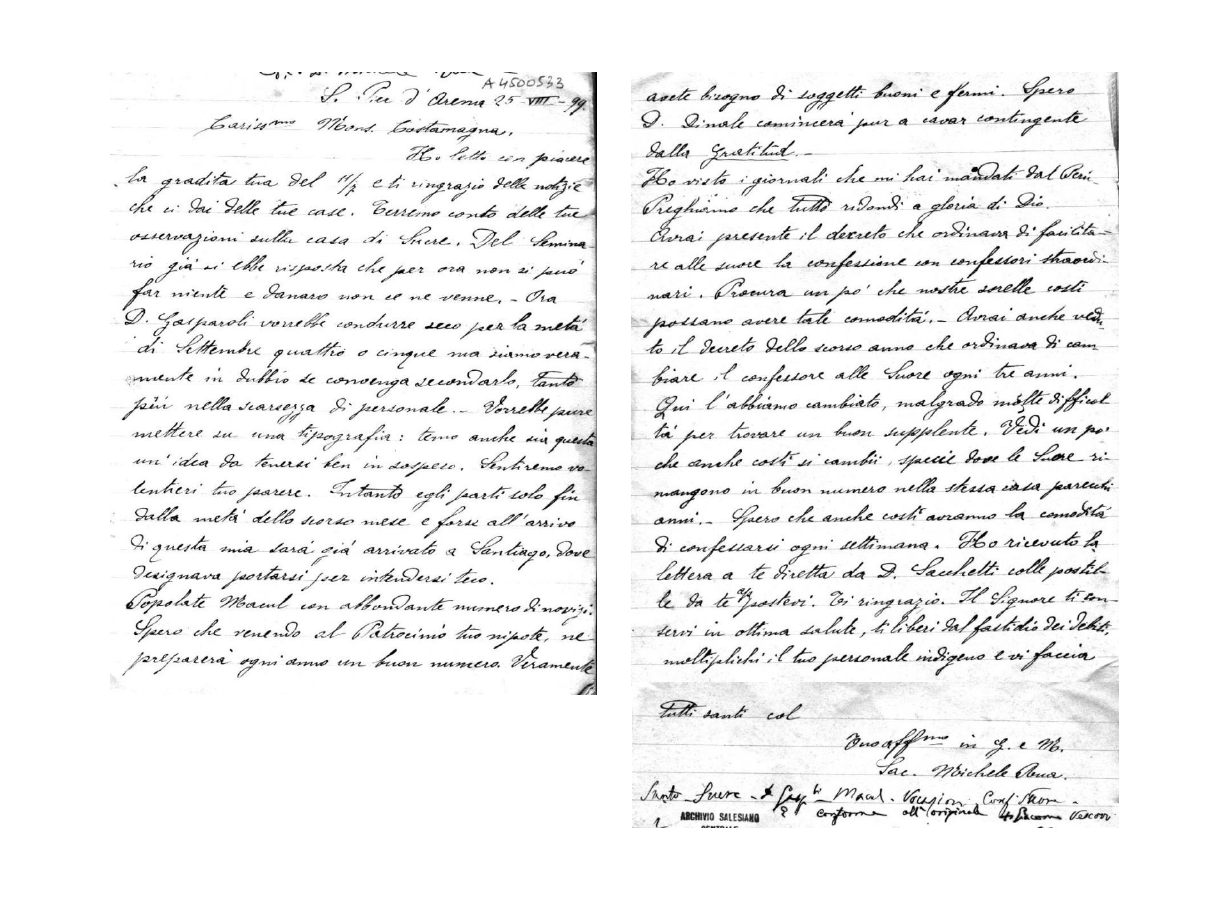 A4500533
S. Pier d'Arena 25-VIII-99.
Cariss.mo Mons. Costamagna,
Ho letto con piacere
la gradita tua del 11/7 e ti ringrazio delle notizie
che ci dai delle tue case. Terremo conto delle tue
osservazioni sulla casa di Sucre. Del Semina-
rio già si ebbe risposta che per ora non si può
far niente e danaro non ce ne venne. - Ora
D. Gasparoli vorrebbe condurre seco per la metà
di Settembre quattro o cinque ma siamo vera-
mente in dubbio se convenga secondarlo, tanto
più nella scarsezza di personale. - Vorrebbe pure
mettere su una tipografia: temo anche sia questa
un'idea da tenersi ben in sospeso. Sentiremo vo-
lentieri tuo parere. Intanto egli partì solo fin
dalla metà dello scorso mese e forse all'arrivo
di questa mia sarà già arrivato a Santiago, dove
designava portarsi per intendersi teco.
Popolate Macul con abbondante numero di novizi.
Spero che venendo al Patrocinio tuo nipote, ne
preparerà ogni anno un buon numero. Veramente
avete bisogno di soggetti buoni e fermi. Spero
D. Dinale comincerà pur a cavar contingente
dalla Gratitud. -
Ho visto i giornali che mi hai mandati dal Perù.
Preghiamo che tutto ridondi a gloria di Dio.
Avrai presente il decreto che ordinava di facilita-
re alle suore la confessione con confessori straordi-
nari. Procura un po' che nostre sorelle costì
possano avere tale comodità. - Avrai anche vedu-
to il decreto dello scorso anno che ordinava di cam
biare il confessore alle Suore ogni tre anni.
Qui l'abbiamo cambiato, malgrado molte difficol
tà per trovare un buon supplente. Vedi un po'
che anche costì si cambii, specie dove le Suore ri-
mangono in buon numero nella stessa casa parecchi
anni. - Spero che anche costì avranno la comodità
di confessarsi ogni settimana. Ho ricevuto la
lettera a te diretta da D. Sacchetti colle postil-
le da te postevi. Ti ringrazio. Il Signore ti con-
servi in ottima salute, ti liberi dal fastidio dei debiti,
moltiplichi il tuo personale indigeno e vi faccia
tutti santi col
Tuo aff.mo in G. e M.
Sac. Michele Rua.
Sucre - Macul - Vocazion. Conf. Suore -
conforme all'originale Giacomo Vescovo
ARCHIVIO SALESIANO
CENTRALE